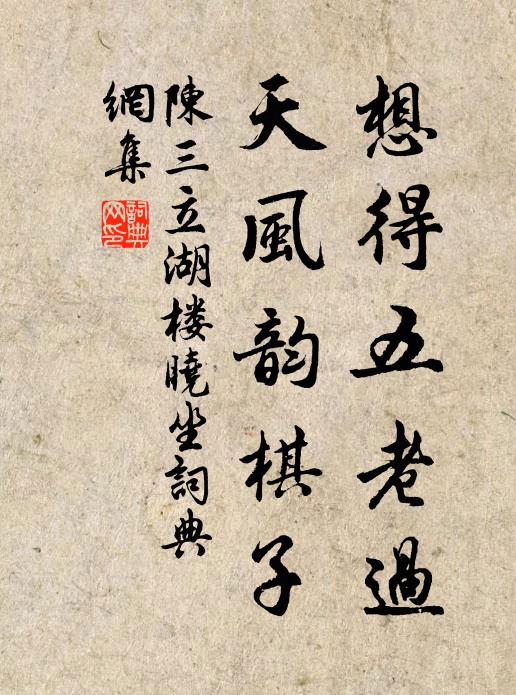 想得五老過
天風韵棋子
陳三立湖楼曉坐詞典
網集
詞典网印